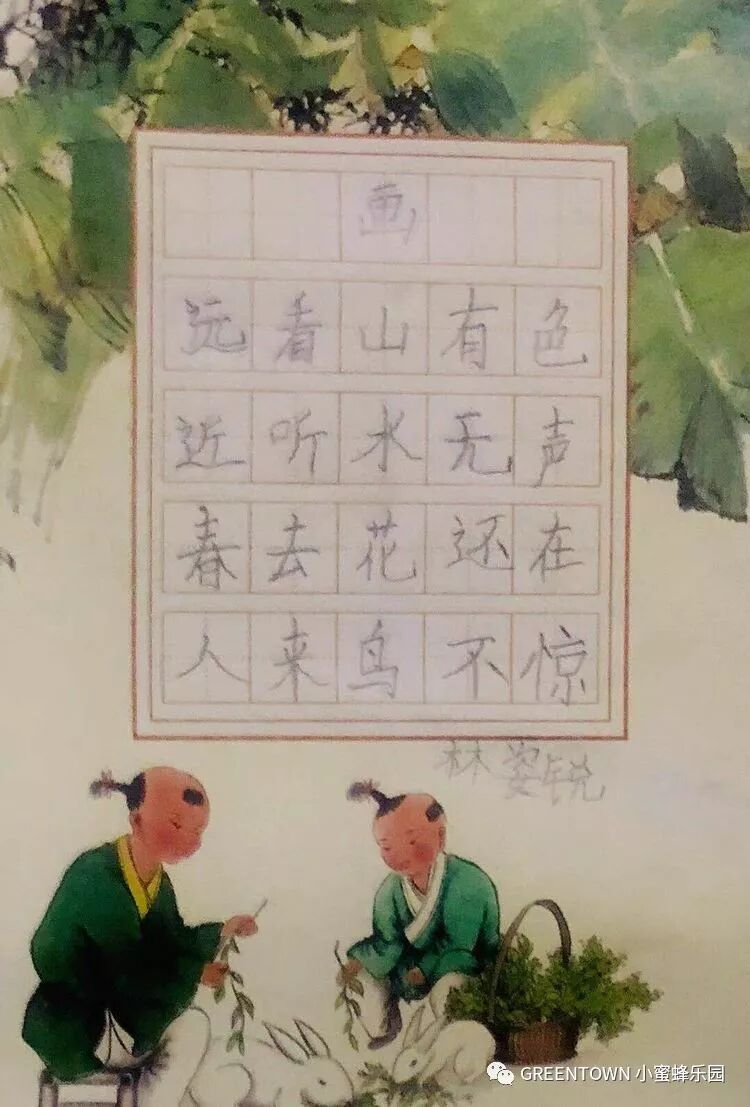 画
远看山有色
近听水无声
春去花还在
人来鸟不惊
林姿锐
GREENTOWN 小蜜蜂乐园